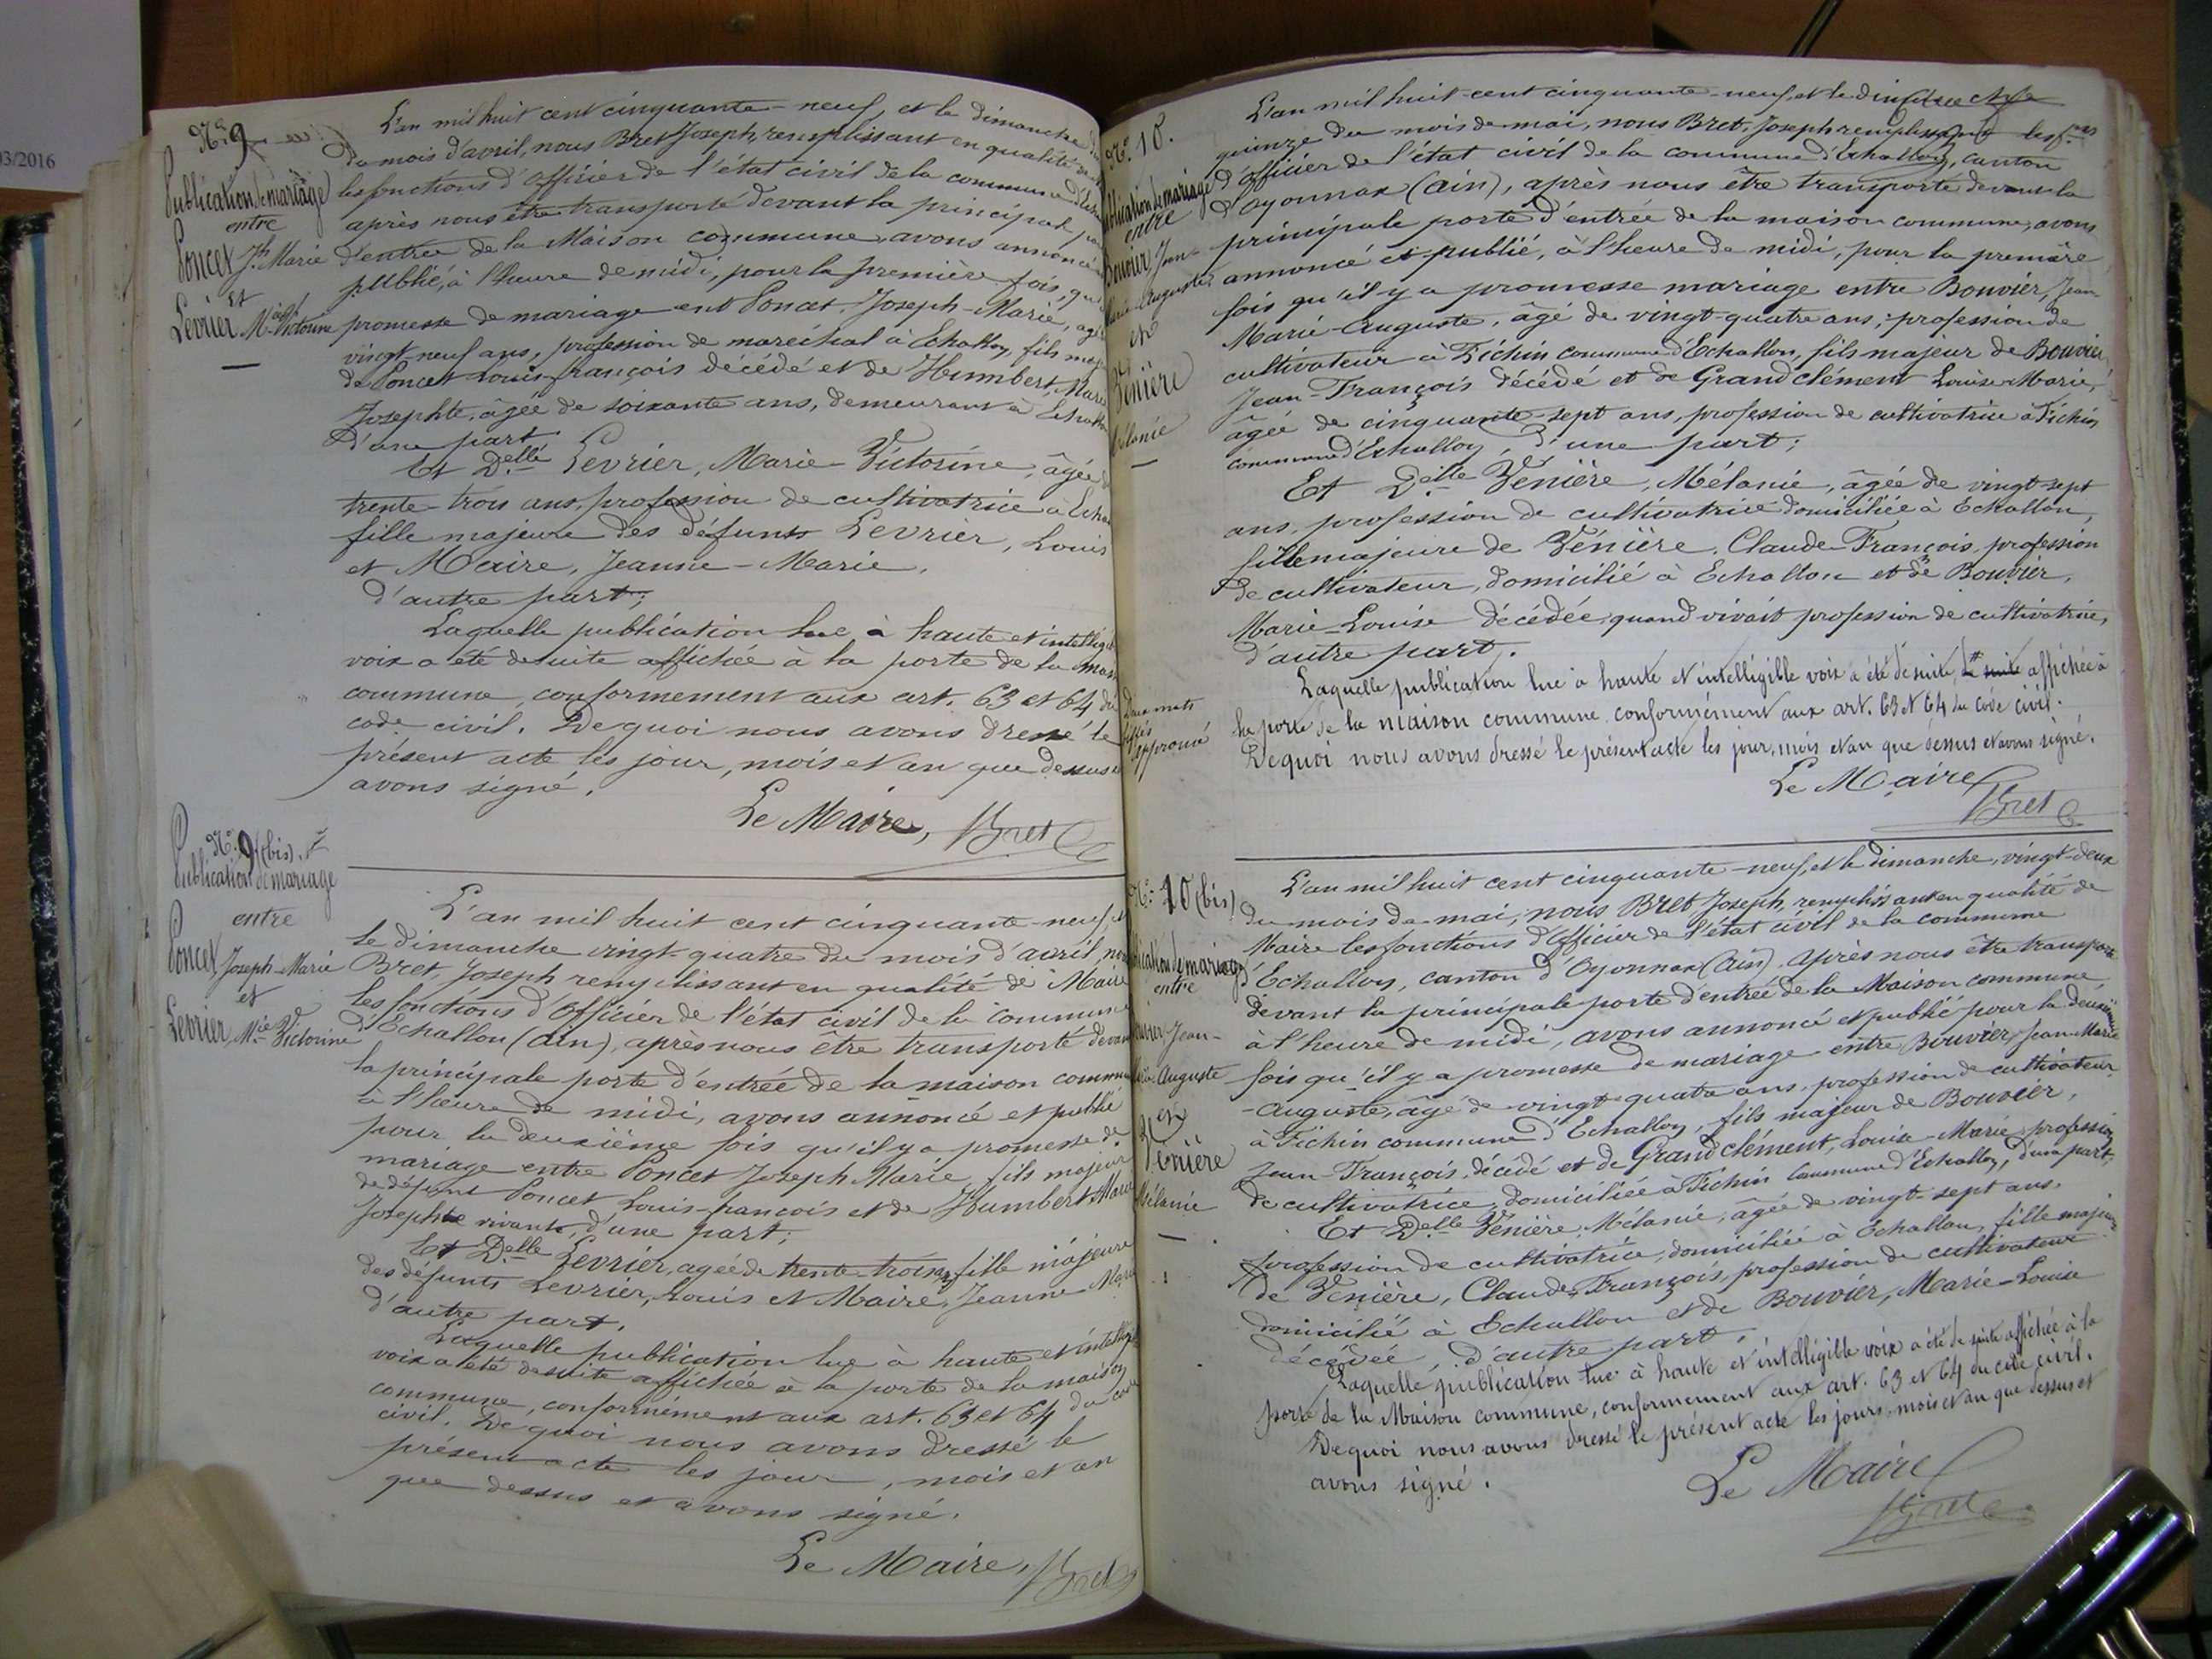 03/2016
N.° 9
Publication de mariage
entre
Poncet Jh Marie
et
Levrier Mie Victorine
L'an mil huit cent cinquante-neuf, et le dimanche
du mois d'avril, nous Bret Joseph, remplissant en qualité
les fonctions d'officier de l'état civil de la commune
après nous être transporté devant la principale
d'entrée de la Maison commune, avons annoncé
publié, à l'heure de midi, pour la première fois,
promesse de mariage ent Poncet, Joseph-Marie,
vingt-neuf ans, profession de maréchal à Echallon, fils
de Poncet Louis-françois décédé et de Humbert,
Josephte, âgée de soixante ans, demeurant à
d'une part
Et Delle Levrier, Marie-Victorine, âgée
trente-trois ans, profession de cultivatrice à
fille majeure des défunts Levrier, Louis
et Maire, Jeanne-Marie,
d'autre part;
Laquelle publication lue à haute et
voix a été de suite affichée à la porte de la
commune, conformement aux art. 63 et 64 du
code civil. De quoi nous avons dressé le
présent acte les jour, mois et an que dessus
avons signé.
Le Maire, Bret
N.° 9 (bis).
Publication de mariage
entre
Poncet, Joseph-Marie
et
Levrier, Mie Victorine
L'an mil huit cent cinquante-neuf,
le dimanche vingt-quatre du mois d'avril,
Bret, Joseph remplissant en qualité de Maire
les fonctions d'officier de l'état civil de la commune
d'Echallon (Ain), après nous être transporté
la principale porte d'entrée de la maison
à l'heure de midi, avons annoncé et publié
pour la deuxième fois qu'il y a promesse de
mariage entre Poncet Joseph Marie, fils majeur
de défunt Poncet, Louis-françois et de Humbert
Josephte vivante, d'une part;
Et Delle Levrier, agée de trente-trois fille majeure
des défunts Levrier, Louis et Maire, Jeanne
d'autre part.
Laquelle publication lue à haute et
voix a été de suite affichée à la porte de la maison
commune, conformement aux art. 63 et 64 du
civil. De quoi nous avons dressé le
présent acte les jour, mois et an
que dessus et avons signé.
Le Maire, Bret
N.° 10.
entre
Bouvier, Jean-
Auguste,
et
Vénière
L'an mil huit cent cinquante-neuf, et le
quinze du mois de mai, nous Bret, Joseph remplissant les
d'officier de l'état civil de la commune d'Echallon, canton
d'Oyonnax (Ain), après nous être transporté devant la
principale porte d'entrée de la maison commune, avons
annoncé et publié, à l'heure de midi, pour la première
fois qu'il y a promesse mariage entre Bouvier, Jean-
Marie-Auguste, âgé de vingt-quatre ans, profession de
cultivateur à Fichin commune d'Echallon, fils majeur de Bouvier
Jean-François décédé et de Grandclément Louise-Marie,
âgée de cinquante-sept ans, profession de cultivatrice à Fichin
commune d'Echallon, d'une part;
Et Delle Vénière, Mélanie, âgée de vingt-sept
ans, profession de cultivatrice domiciliée à Echallon,
fille majeure de Vénière, Claude-François, profession
de cultivateur, domicilié à Echallon et de Bouvier,
Marie-Louise décédée, quand vivait profession de cultivatrice,
d'autre part.
Laquelle publication lue à haute et intelligible voix a été de suite, de suite affichée à
la porte de la maison commune conformément aux art. 63 et 64 du code civil.
De quoi nous avons dressé le présent acte les jour, mois et an que dessus et avons signé.
Deux mots
approuvé
Le Maire
Bret
N.° 10 (bis)
entre
Jean-
Auguste
et
Vénière
Mélanie
L'an mil huit cent cinquante-neuf, et le dimanche, vingt-deux
du mois de mai, nous Bret Joseph, remplissant en qualité de
Maire les fonctions d'officier de l'état civil de la commune
d'Echallon, canton d'Oyonnax (Ain). Après nous être transporté
devant la principale porte d'entrée de la Maison commune
à l'heure de midi, avons annoncé et publié pour la deuxième
fois qu'il y a promesse de mariage entre Bouvier, Jean-Marie
-Auguste, âgé de vingt-quatre ans, profession de cultivateur
à Fichin commune d'Echallon, fils majeur de Bouvier,
Jean-François, décédé et de Grandclément, Louise-Marie profession
de cultivatrice, domiciliée à Fichin commune d'Echallon, d'une part;
Et Delle Vénière, Mélanie, âgée de vingt-sept ans,
profession de cultivatrice, domiciliée à Echallon, fille majeure
de Vénière, Claude-François, profession de cultivateur
domicilié à Echallon et de Bouvier, Marie-Louise
décédée, d'autre part.
Laquelle publication lue à haute et intelligible voix a été de suite affichée à la
porte de la Maison commune, conformement aux art. 63 et 64 du code civil.
De quoi nous avons dressé le présent acte les jours, mois et an que dessus et
avons signé.
Le Maire
Bret